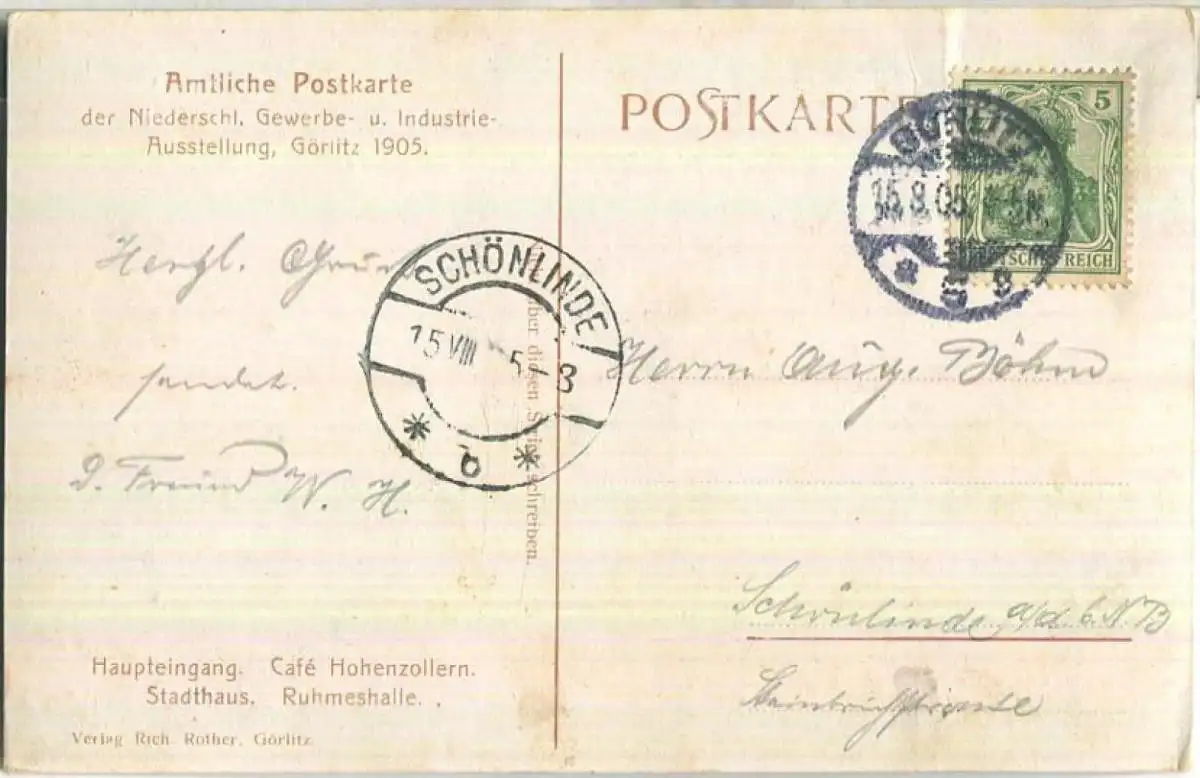 Amtliche Postkarte
der Niederschl. Gewerbe- u. Industrie-
Ausstellung, Görlitz 1905.
Herzl. Gruß
sendet.
d. Freund W. H.
Haupteingang. Café Hohenzollern.
Stadthaus. Ruhmeshalle.
Verlag Rich. Rother, Görlitz
SCHÖNLINDE
15 VIII 5-3
b
ber diesen schreiben.
POSTKARTE
GÖRLITZ
15.8.05. N.
a
5
DEUTSCHES REICH
Herrn Aug. Böhm
Schönlinde a/d b. N. B